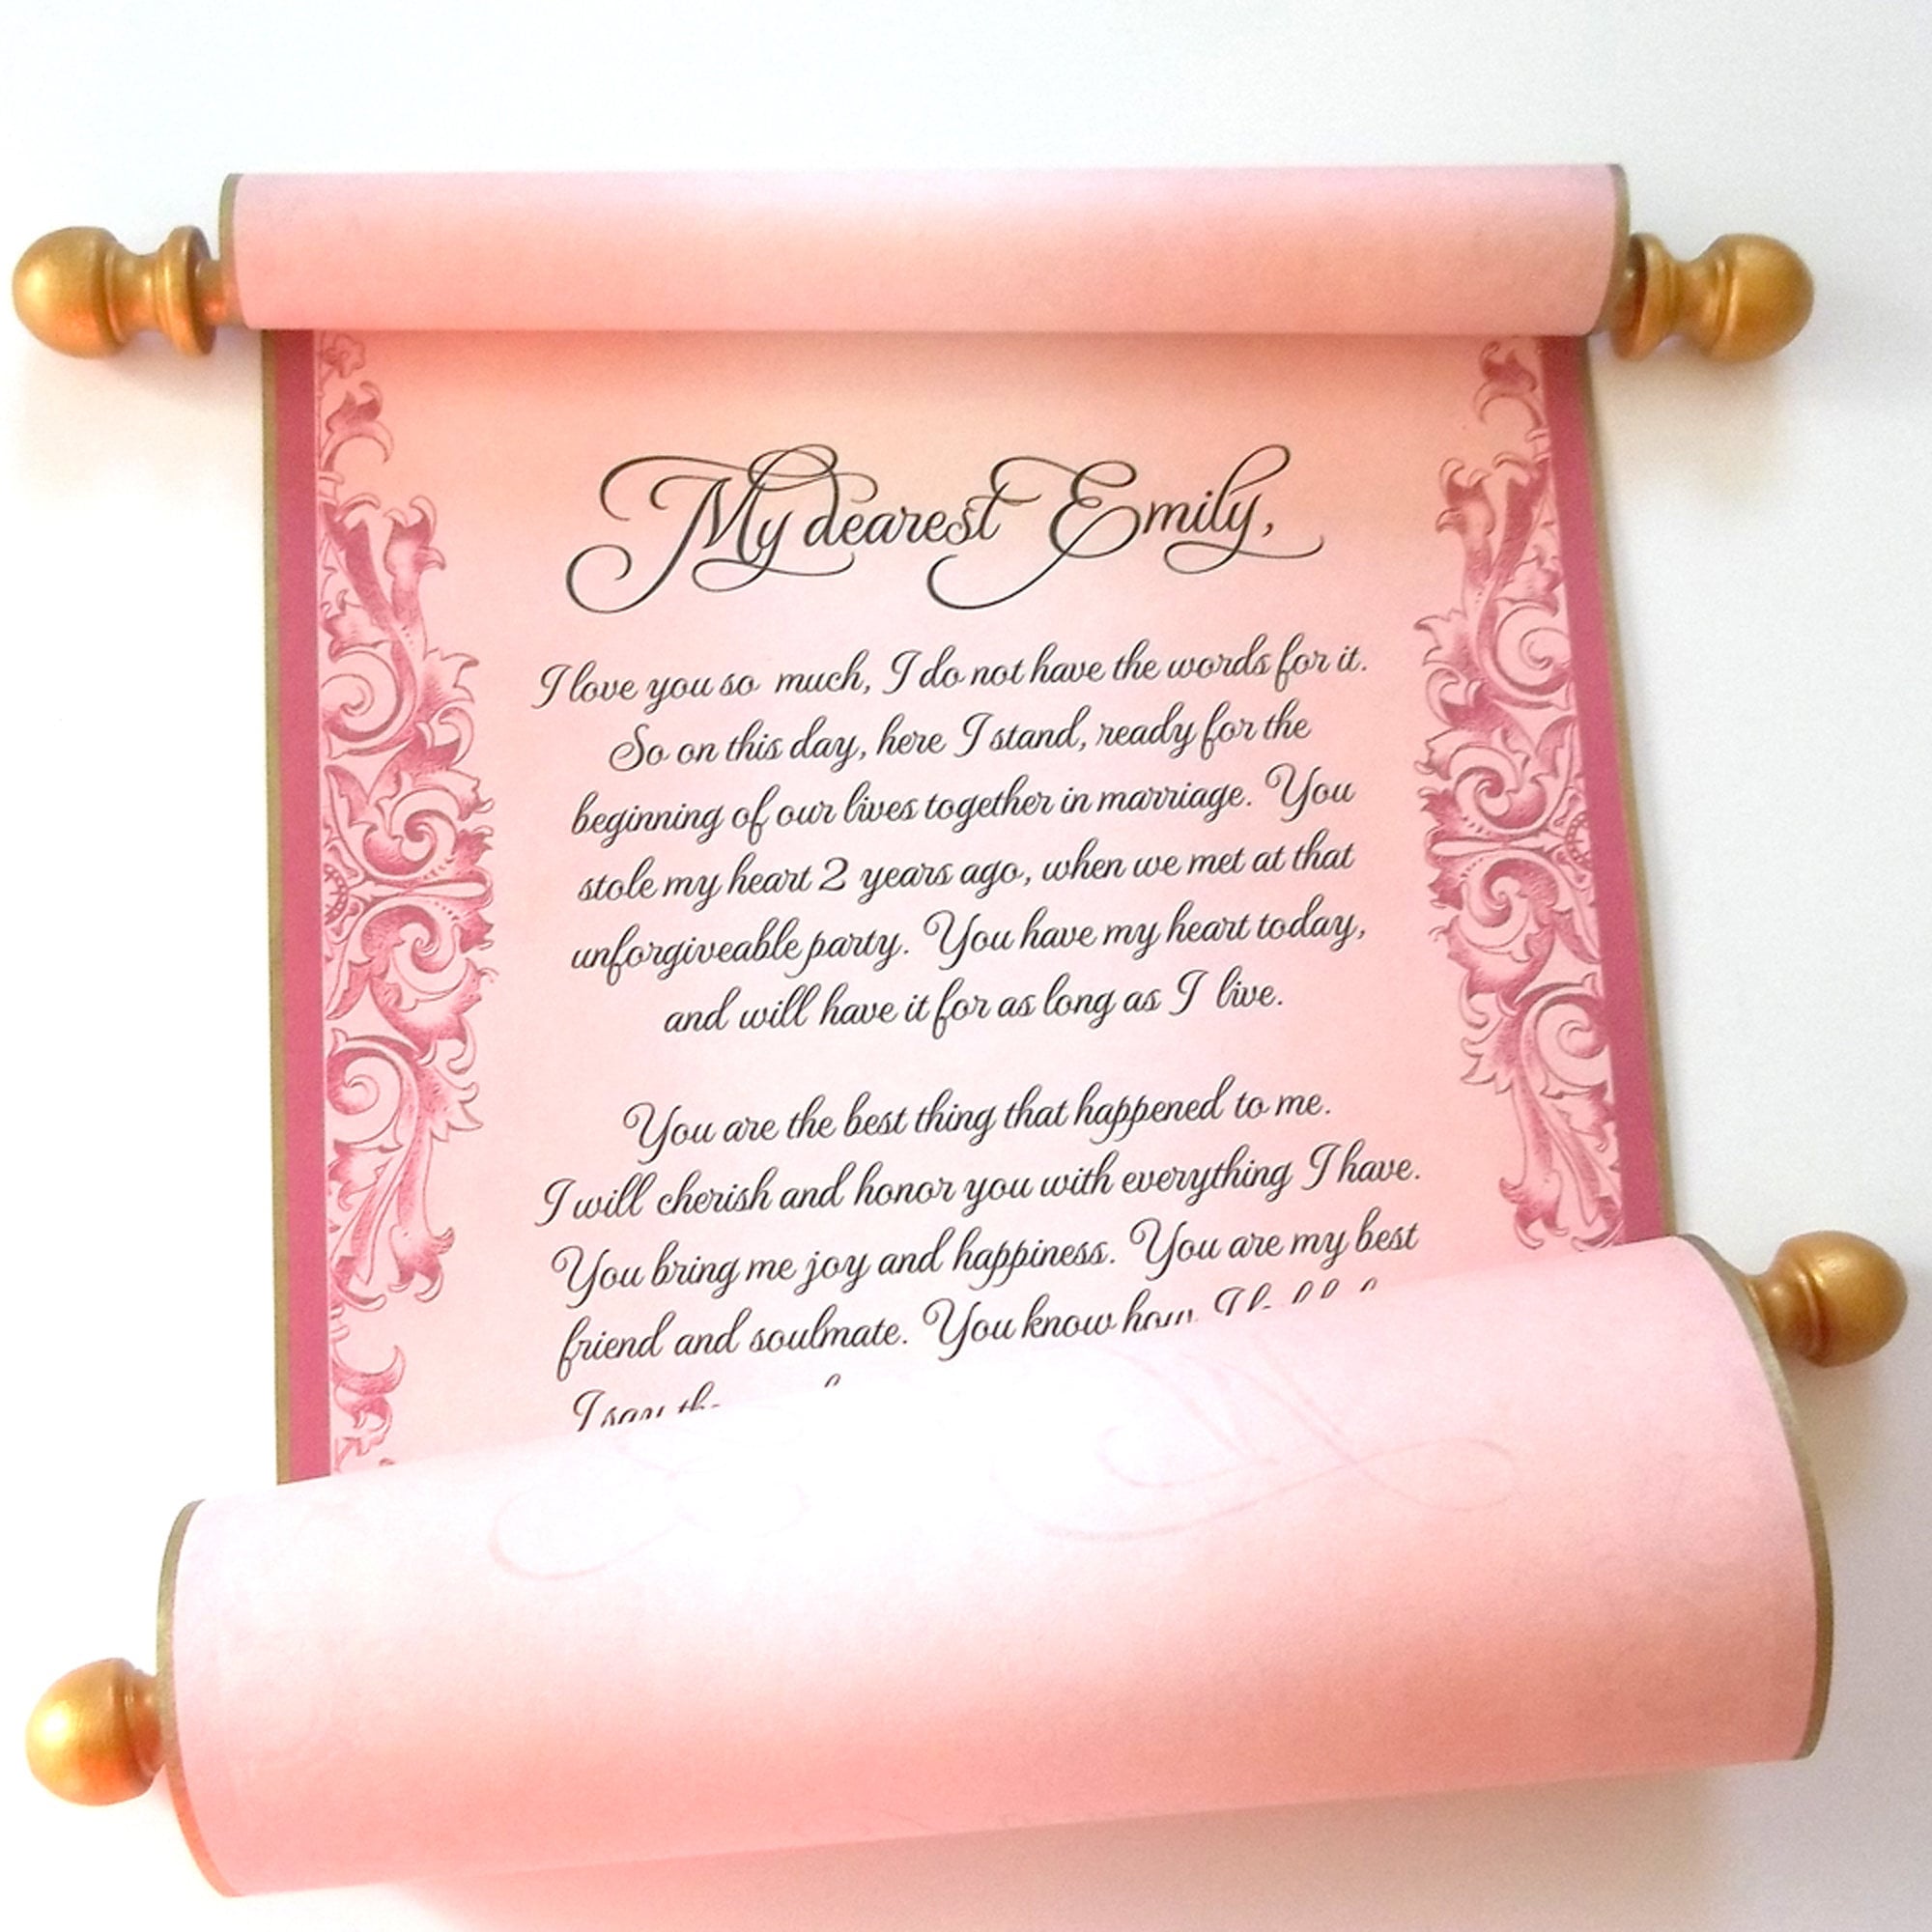 My dearest Emily,
I love you so much, I do not have the words for it.
So on this day, here I stand, ready for the
beginning of our lives together in marriage. You
stole my heart 2 years ago, when we met at that
unforgiveable party. You have my heart today,
and will have it for as long as I live.
You are the best thing that happened to me.
I will cherish and honor you with everything I have.
You bring me joy and happiness. You are my best
friend and soulmate. You know how I
I say